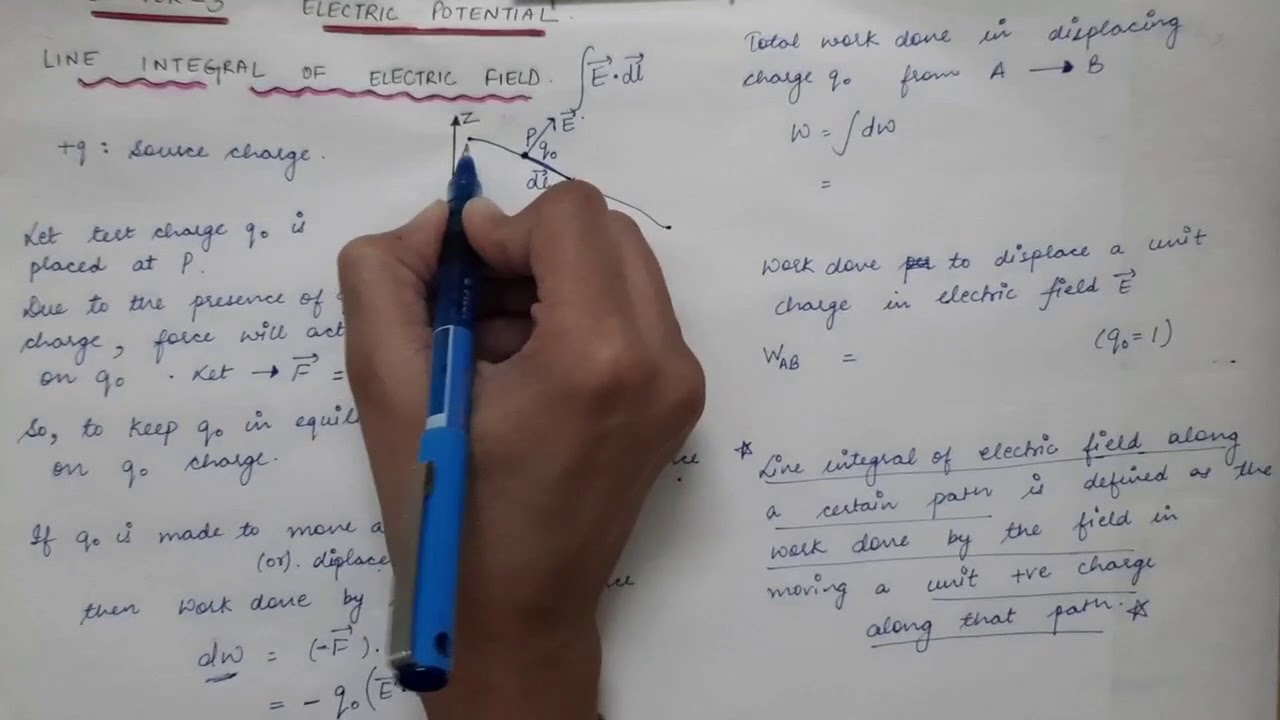 ELECTRIC POTENTIAL.
LINE INTEGRAL OF ELECTRIC FIELD. ∫E⃗·dl⃗
+q : Source charge.
Z
P E⃗
q₀
dl⃗
Let test charge q₀ is
placed at P.
Due to the presence of
charge, force will act
on q₀ . Let → F⃗ =
So, to keep q₀ in
on q₀ charge.
If q₀ is made to move
(or). diplace
then work done by
dw = (-F⃗).
= - q₀(E⃗
Total work done in displacing
charge q₀ from A → B
W = ∫dw
=
Work done to displace a unit
charge in electric field E⃗
W_AB = (q₀=1)
☆ Line integral of electric field along
a certain path is defined as the
work done by the field in
moving a unit +ve charge
along that path. ☆